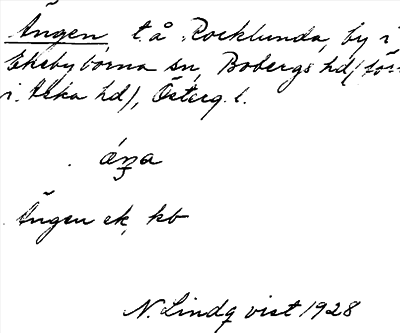 Ängen, t. å Rocklunda, by i
Ekebyborna sn, Bobergs hd (förr
i Aska hd), Österg. l.
Ängen ek, kb
N. Lindqvist 1928